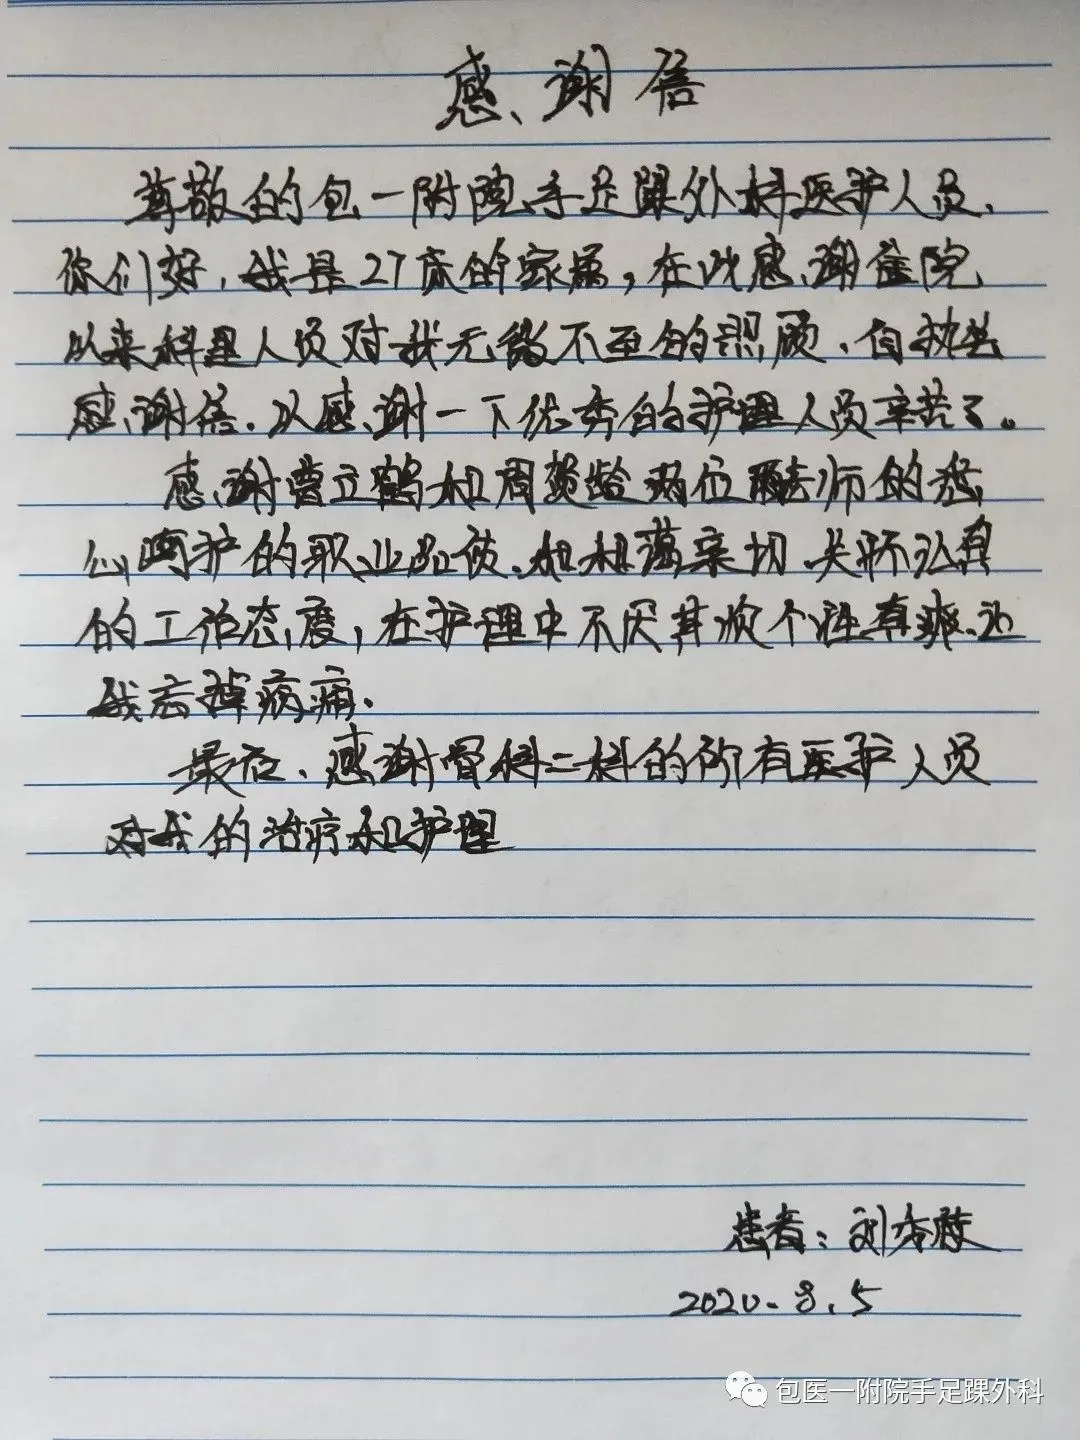 感谢信
尊敬的包一附院手足踝外科医护人员、
你们好，我是27床的家属，在此感谢住院
以来科里人员对我无微不至的照顾、自执笔
感谢信.以感谢一下优秀的护理人员辛苦了。
感谢曹立鹤和周赞龄两位 师的
心呵护的职业品质、和和蔼亲切、关怀认真
的工作态度，在护理中不厌其烦个性直爽、让
我忘掉病痛.
最后、感谢骨科二科的所有医护人员
对我的治疗和护理
患者：刘
2020.8.5
包医一附院手足踝外科